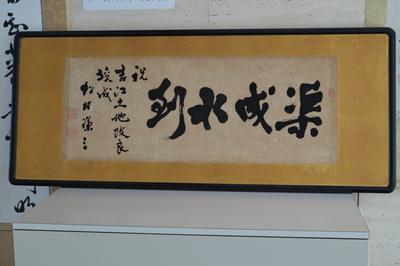 渠成水到
祝
吉江土地改良
竣成
松村謙三